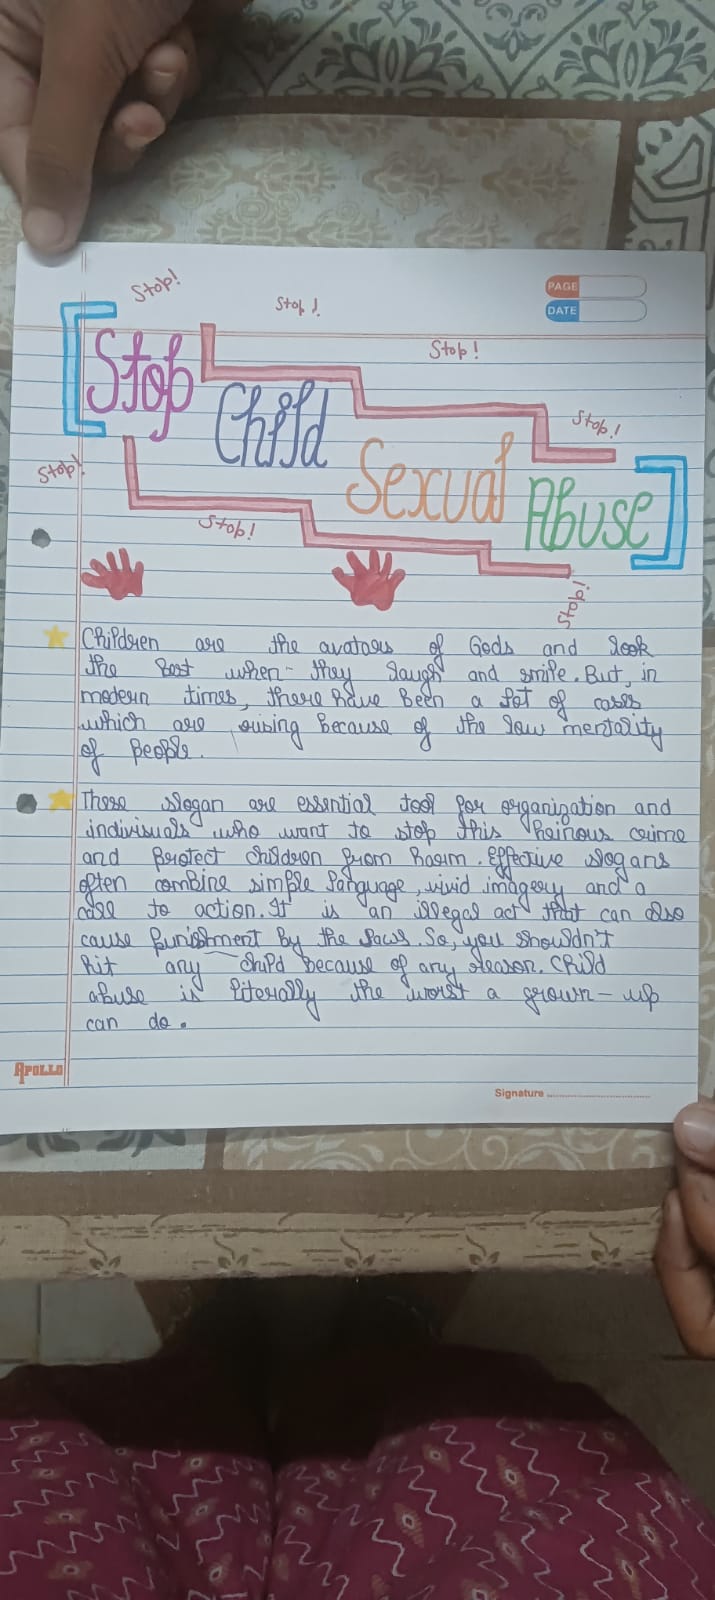 Stop!
Stop!
PAGE
DATE
Stop!
Stop
Child
Stop!
Sexual
Abuse
Stop!
Stop!
Stop!
Children are the avatars of Gods and look
the best when- they laugh and smile. But, in
modern times, there have been a lot of cases
which are rising because of the low mentality
of people.
These slogan are essential tool for organization and
individuals who want to stop this heinous crime
and protect children from harm. Effective slogans
often combine simple language, vivid imagery and a
call to action. It is an illegal act that can also
cause punishment by the laws. So, you shouldn't
hit any child because of any reason. Child
abuse is literally the worst a grown-up
can do.
APOLLO
Signature